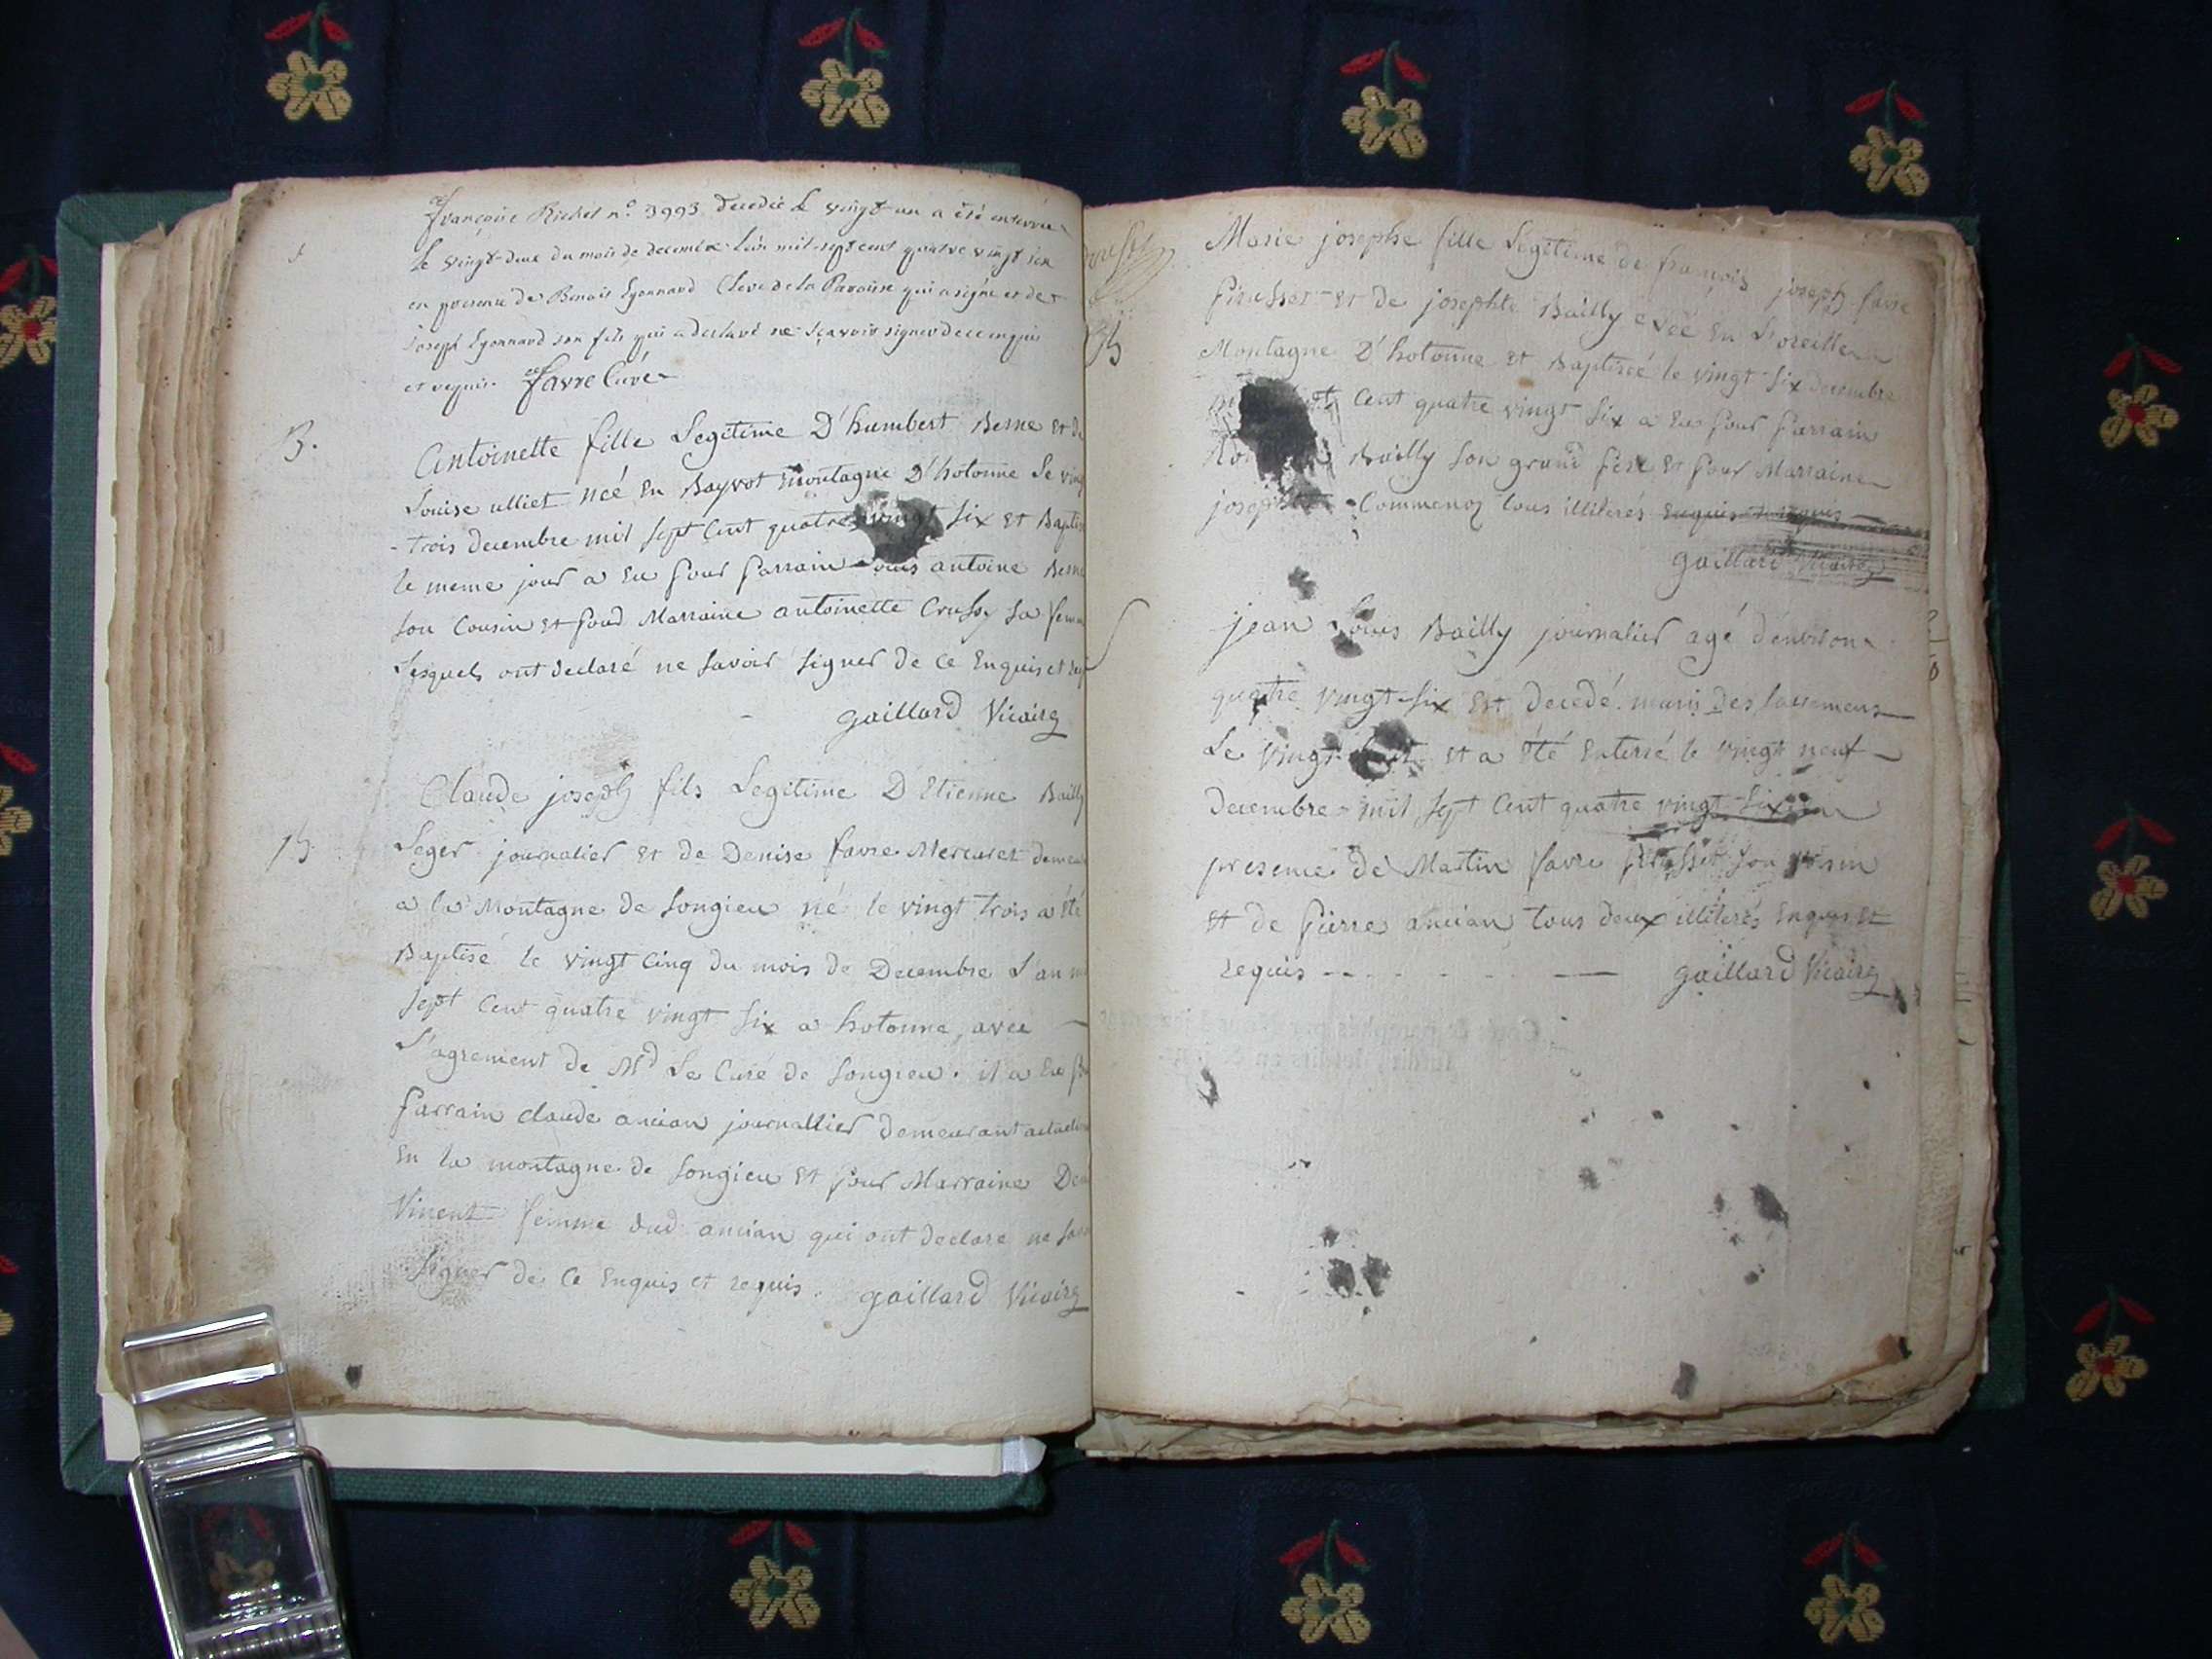 françoise Richet n.o 3993 decedée Le vingt-un a été enterrée
Le vingt-deux du mois de decembre L'an mil-sept cent quatre vingt six
en presence de Benoit Lyonnard Clerc de la Paroisse qui a signé et de
Joseph Lyonnard son fils qui a declaré ne sçavoir signer de ce enquis
et requis. favre Curé
B.
Antoinette fille Legitime D'humbert Berne et de
Louise ulliet neé En Bayvot montagne D'hotonne Le vingt
trois decembre mil sept Cent quatre vingt six et Baptis
le meme jour a Eu pour parrain Louis antoine Berne
son Cousin et pour Marraine antoinette Crussy sa fem
Lesquels ont declaré ne savoir signer de Ce Enquis et req
gaillard Vicaire
Claude joseph fils Legitime D'Etienne Bailly
Leger journalier et de Denise favre Mercuret demeu
a la Montagne de Songieu né le vingt trois a été
Baptisé le vingt Cinq du mois de Decembre L'an m
sept Cent quatre vingt six a hotonne, avec
L'agrement de Mr Le Curé de Songieu. il a Eu p
parrain claude ancian journallier demeurant actuel
En la montagne de Songieu et pour Marraine Den
Vincent femme dud ancian qui ont declaré ne sav
signer de Ce Enquis et requis. gaillard Vicaire
Marie josephe fille Légitime de françois joseph favre
pirasset et de josephte Bailly neé En
Montagne D'hotonne et Baptiseé le vingt six decembre
Cent quatre vingt six a Eu pour parrain
Bailly son grand pere et pour Marraine
josephte Commenoz tous illiterés Enquis et requis
gaillard Vicaire
jean Louis Bailly journalier agé d'environ
quatre vingt-six Est decedé muni des sacremens
Le vingt huit et a été Enterré le vingt neuf
decembre mil sept Cent quatre vingt-six en
presence de Martin favre pirasset son
et de pierre ancian tous deux illiterés Enquis et
requis gaillard Vicaire